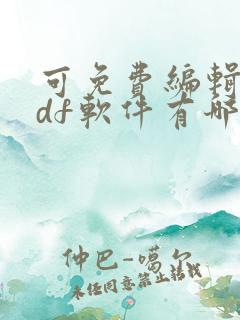 可免費編輯
df軟件有哪
仲巴-噶尔
未经同意禁止转载